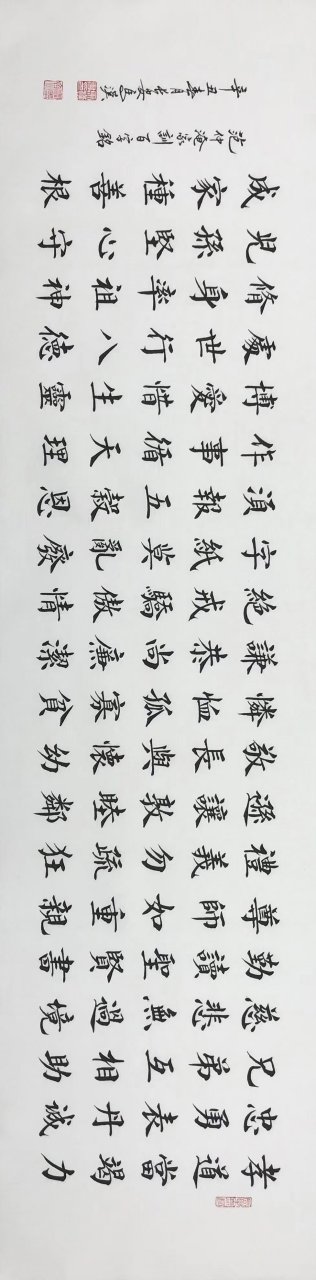 孝道當竭力
忠勇表丹誠
兄弟互相助
慈悲無過境
勤讀聖賢書
尊師如重親
禮義勿疏狂
遜讓敦睦鄰
敬長與懷幼
憐恤孤寡貧
謙恭尚廉潔
絕戒驕傲情
字紙莫亂發
須報五穀恩
作事循天理
博愛惜生靈
處世行八德
脩身率祖神
兒孫堅心守
成家種善根
范仲淹家訓百字銘
辛丑春月長安漢